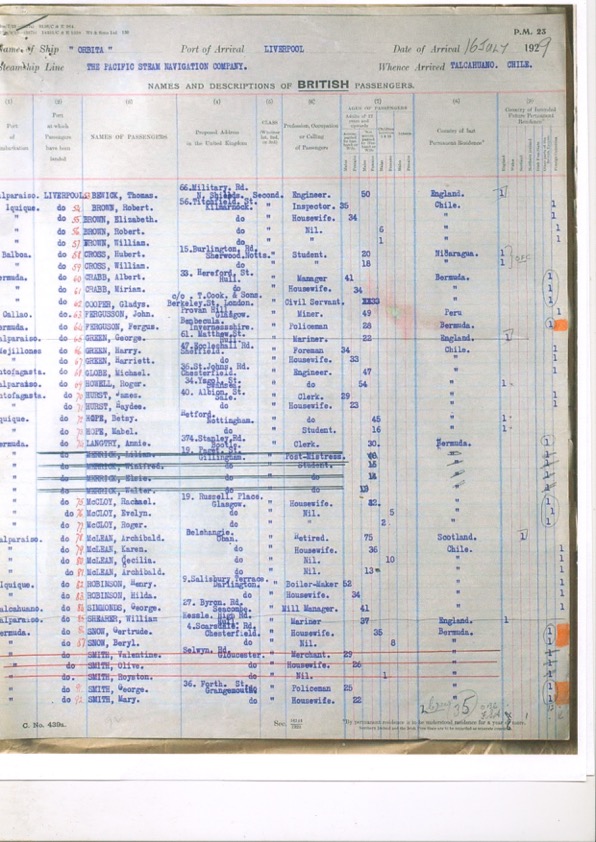 Name of Ship " ORBITA " Port of Arrival LIVERPOOL Date of Arrival 16 JULY 1929
Steamship Line THE PACIFIC STEAM NAVIGATION COMPANY. Whence Arrived TALCAHUANO. CHILE.
P.M. 23
NAMES AND DESCRIPTIONS OF BRITISH PASSENGERS.
Port at which Passengers have been landed
NAMES OF PASSENGERS
Proposed Address in the United Kingdom
CLASS
Profession, Occupation or Calling of Passengers
AGES OF PASSENGERS
Country of last Permanent Residence*
Country of Intended Future Permanent Residence*
alparaiso. LIVERPOOL BEWICK, Thomas. 66.Military. Rd. N. Shields. Second. Engineer. 50 England. 1
Iquique. do BROWN, Robert. 56.Titchfield. St. Kilmarnock. " Inspector. 35 Chile. 1
" do 55 BROWN, Elizabeth. do " Housewife. 34 " 1
" do 56 BROWN, Robert. do " Nil. 6 " 1
" do 57 BROWN, Willian. do " " 1 " 1
Balboa. do 58 CROSS, Hubert. 15.Burlington. Rd. Sherwood.Notts. " Student. 20 Nicaragua. 1
" do 59 CROSS, Willian. do " " 18 " 1
ermuda. do 60 CRABB, Albert. 33. Hereford. St. Hull. " Manager 41 Bermuda. 1
" do 61 CRABB, Mirian. do " Housewife. 34 " 1
" do 62 COOPER, Gladys. c/o . T.Cook. & Sons. Berkeley.St. London. " Civil Servant. " 1
Callao. do 63 FERGUSSON, John. Provan Hill Glasgow. " Miner. 49 Peru 1
ermuda. do 64 FERGUSS, Fergus. Benbecula. Invernessshire. " Policeman 28 Bermuda. 1
" do GREEN, George. 61. Matthew.St. Hull. " Mariner. 22 England. 1
Mejillones do 66 GREEN, Harry. 47.Eccleshall Rd. Sheffield. " Foreman 34 Chile. 1
" do 67 GREEN, Harriett. do " Housewife. 33 " 1
ntofagasta. do 68 GLOBE, Michael. 36.St.Johns. Rd. Chesterfield. " Engineer. 47 " 1
alparaiso. do 69 HOWELL, Roger. Swansea. " do 54 " 1
ntofagasta. do 70 HURST, James. 40. Albion. St. Sale. " Clerk. 29 " 1
" do 71 HURST, Haydee. do " Housewife. 23 " 1
quique. do 72 HOPE, Betsy. Retford. Nottingham. " do 45 " 1
" do 73 HOPE, Mabel. do " Student. 16 " 1
ermuda. do 74 LANGTRY, Annie. 374.Stanley.Rd. Bootle. " Clerk. 30. Bermuda. 1
" do MERRICK, Lilian. Gillingham. " Post-Mistress. "
" do MERRICK, Winifred. do " Student. "
" do MERRICK, Elsie. do " do 14 "
" do MERRICK, Walter. do " do "
" do 75 McCLOY, Rachael. 19. Russell. Place. Glasgow. " Housewife. " 1
" do 76 McCLOY, Evelyn. do " Nil. 5 " 1
" do 77 McCLOY, Roger. do " " 2 " 1
alparaiso. do 78 McLEAN, Archibald. Oban. " Retired. 75 Scotland. 1
" do 79 McLEAN, Karen. do " Housewife. 36 Chile. 1
" do 80 McLEAN, Cecilia. do " Nil. 10 " 1
" do 81 McLEAN, Archibald. do " Nil. 13 " 1
Iquique. do 82 ROBINSON, Henry. 9.Salisbury.Terrace. Darlington. " Boiler-Maker 52 " 1
" do 83 ROBINSON, Hilda. do " Housewife. 34 " 1
alcahuano do 84 SIMMONDS, George. 27. Byron. Rd. Seacombe. " Mill Manager. 41 " 1
alparaiso. do 85 SHEARER, Willian Hessle. High Rd. " Mariner 37 England. 1
ermuda. do 86 SNOW, Gertrude. 4.Scarsdale. Rd. Chesterfield. " Housewife. 35 Bermuda. 1
" do 87 SNOW, Beryl. do " Nil. 8 " 1
" do SMITH, Valentine. Selwyn. Rd. Gloucester. " Merchant. 29 " 1
" do SMITH, Olive. do " Housewife. 26 " 1
" do SMITH, Royston. do " Nil. 1 " 1
" do SMITH, George. 36. Forth. St. Grangemouth. " Policeman 25 " 1
" do 92 SMITH, Mary. do " Housewife. 22 " 1
C. No. 439a.
*By permanent residence is to be understood residence for a year or more.